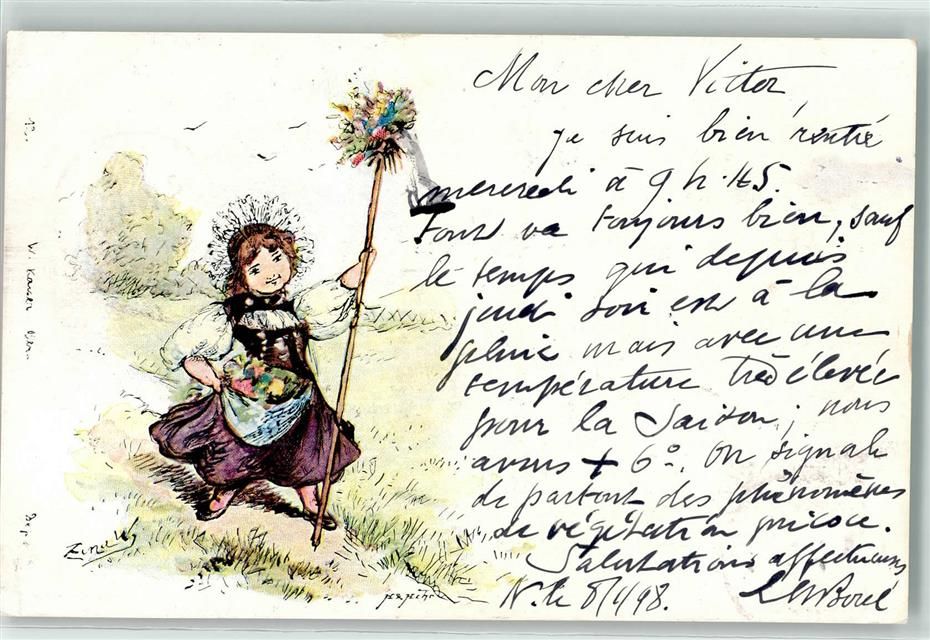 Mon cher Victor
je suis bien rentré
mercredi à 9 h. 45.
Tout va toujours bien, sauf
le temps qui depuis
jeudi soir est à la
pluie mais avec une
température très élevée
pour la saison; nous
avons + 6°. On signale
de partout des phénomènes
de végétation précoce.
Salutations affectueuses
N. le 8/1/98. Borel
W. Kaiser